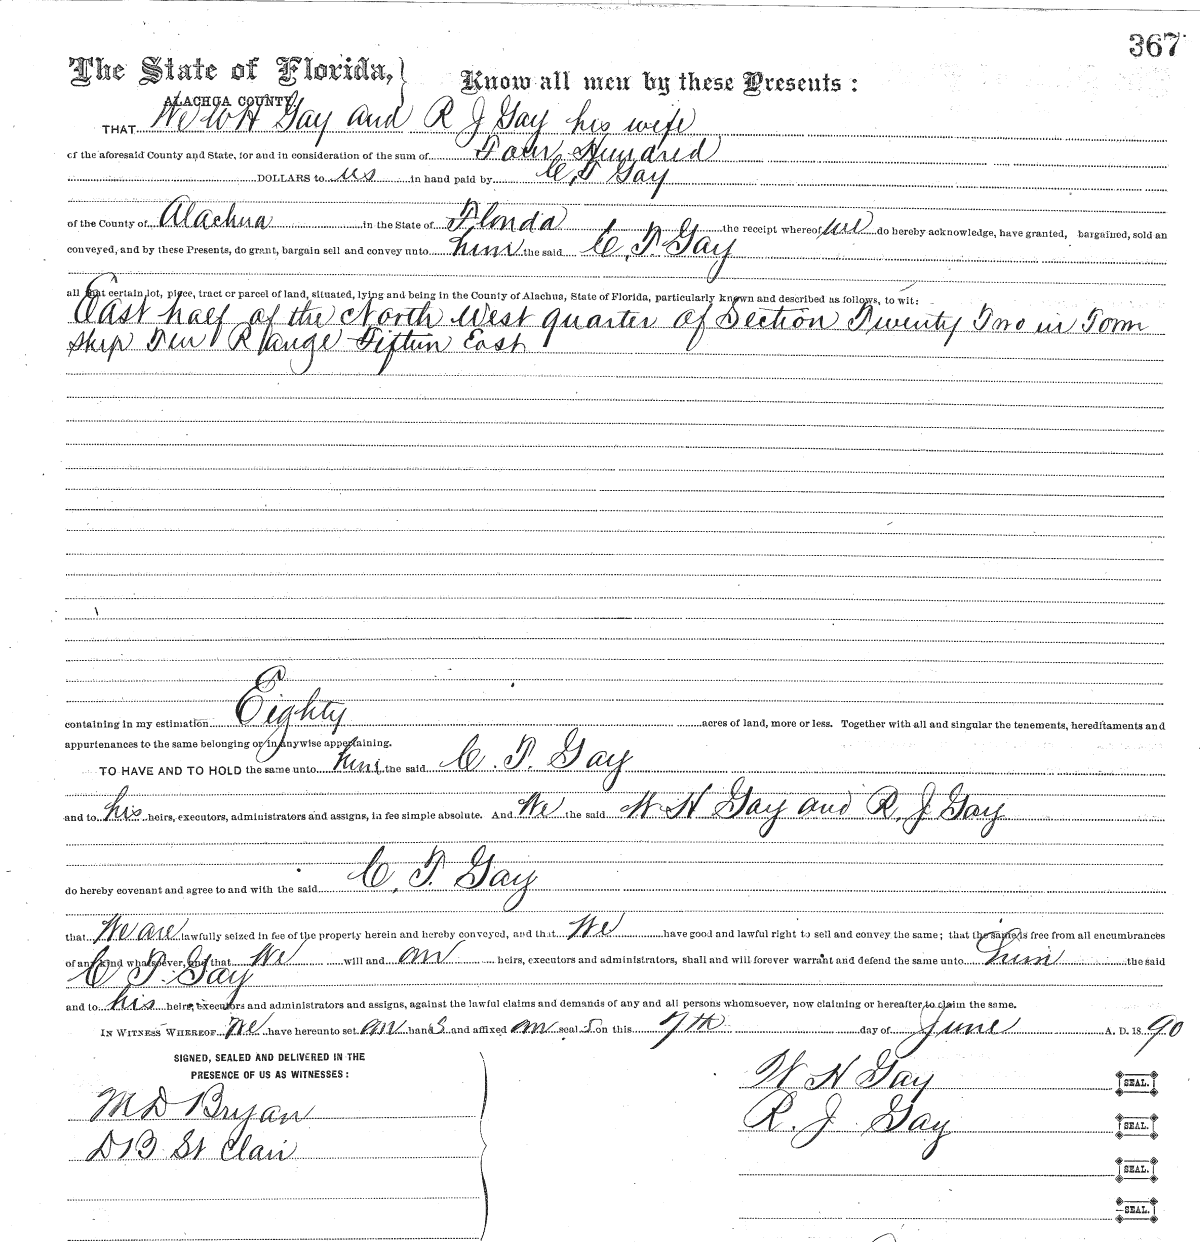 367
The State of Florida, } Know all men by these Presents :
ALACHUA COUNTY
THAT We W H Gay and R J Gay his wife
of the aforesaid County and State, for and in consideration of the sum of Four Hundred
DOLLARS to us in hand paid by C, T Gay
of the County of Alachua in the State of Florida the receipt whereof we do hereby acknowledge, have granted, bargained, sold an
conveyed, and by these Presents, do grant, bargain sell and convey unto him the said C, T. Gay
all that certain lot, piece, tract or parcel of land, situated, lying and being in the County of Alachua, State of Florida, particularly known and described as follows, to wit:
East half of the North West quarter of Section Twenty Two in Town
ship Ten Range Fifteen East
containing in my estimation Eighty acres of land, more or less. Together with all and singular the tenements, hereditaments and
appurtenances to the same belonging or in anywise appertaining.
TO HAVE AND TO HOLD the same unto him the said C. T. Gay
and to his heirs, executors, administrators and assigns, in fee simple absolute. And We the said W H Gay and R. J Gay
do hereby covenant and agree to and with the said C, T. Gay
that We are lawfully seized in fee of the property herein and hereby conveyed, and that We have good and lawful right to sell and convey the same; that the same is free from all encumbrances
of any kind whatsoever, and that We will and our heirs, executors and administrators, shall and will forever warrant and defend the same unto him the said
C T. Gay
and to his heirs, executors and administrators and assigns, against the lawful claims and demands of any and all persons whomsoever, now claiming or hereafter to claim the same.
IN WITNESS WHEREOF We have hereunto set our hands and affixed our seal s on this 7th day of June A. D. 1890
SIGNED, SEALED AND DELIVERED IN THE
PRESENCE OF US AS WITNESSES :
M D Bryan
D B St Clair
W H Gay SEAL.
R. J Gay SEAL.
SEAL.
SEAL.